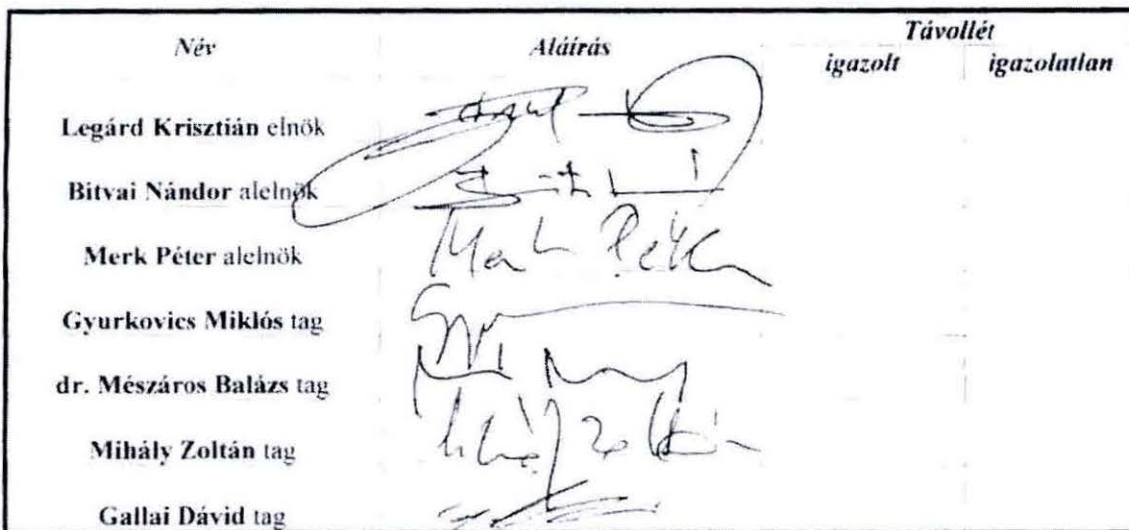 Név Aláírás Távollét
igazolt igazolatlan
Legárd Krisztián elnök
Bitvai Nándor alelnök
Merk Péter alelnök Merk Péter
Gyurkovics Miklós tag
dr. Mészáros Balázs tag
Mihály Zoltán tag Mihály Zoltán
Gallai Dávid tag